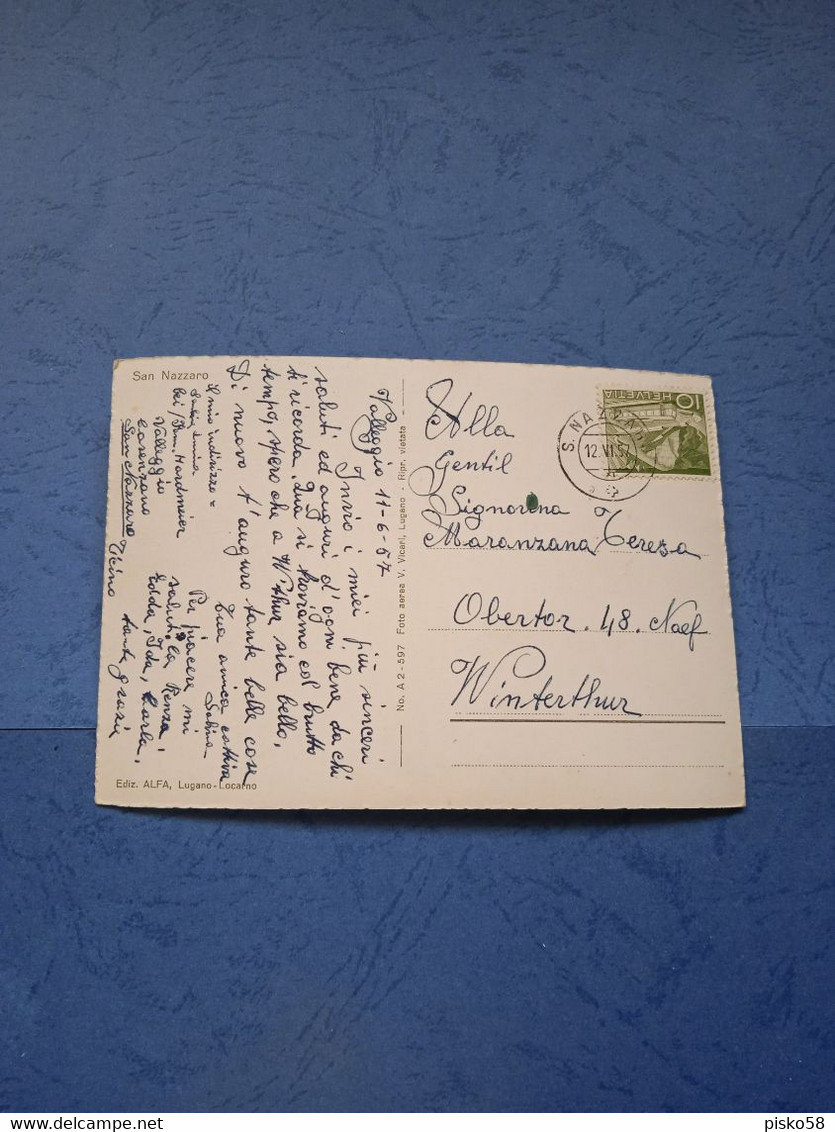 San Nazzaro
Valleggio 11-6-57
Invio i miei più sinceri
saluti ed auguri d'ogni bene da chi
ti ricorda. Qua si troviamo col brutto
tempo, spero che a W'thur sia bello,
Di nuovo t'auguro tante belle cose
Tua amica cattiva
Sabina
Per piacere mi
saluti la Renza,
Edda, Ida, Carla,
tante grazie
Il mio indirizzo =
bei / Fam. Hardmeier
Valleggio
casenzano
San Nazzaro Ticino
Ediz. ALFA, Lugano-Locarno
No. A 2 - 597 Foto aerea V. Vicari, Lugano - Ripr. vietata
HELVETIA 10
S. NAZZARO
12.VI.57
Alla
Gentil
Signorina
Maranzana Teresa
Obertor. 48. Naef
Winterthur
delcampe.net
pisko58